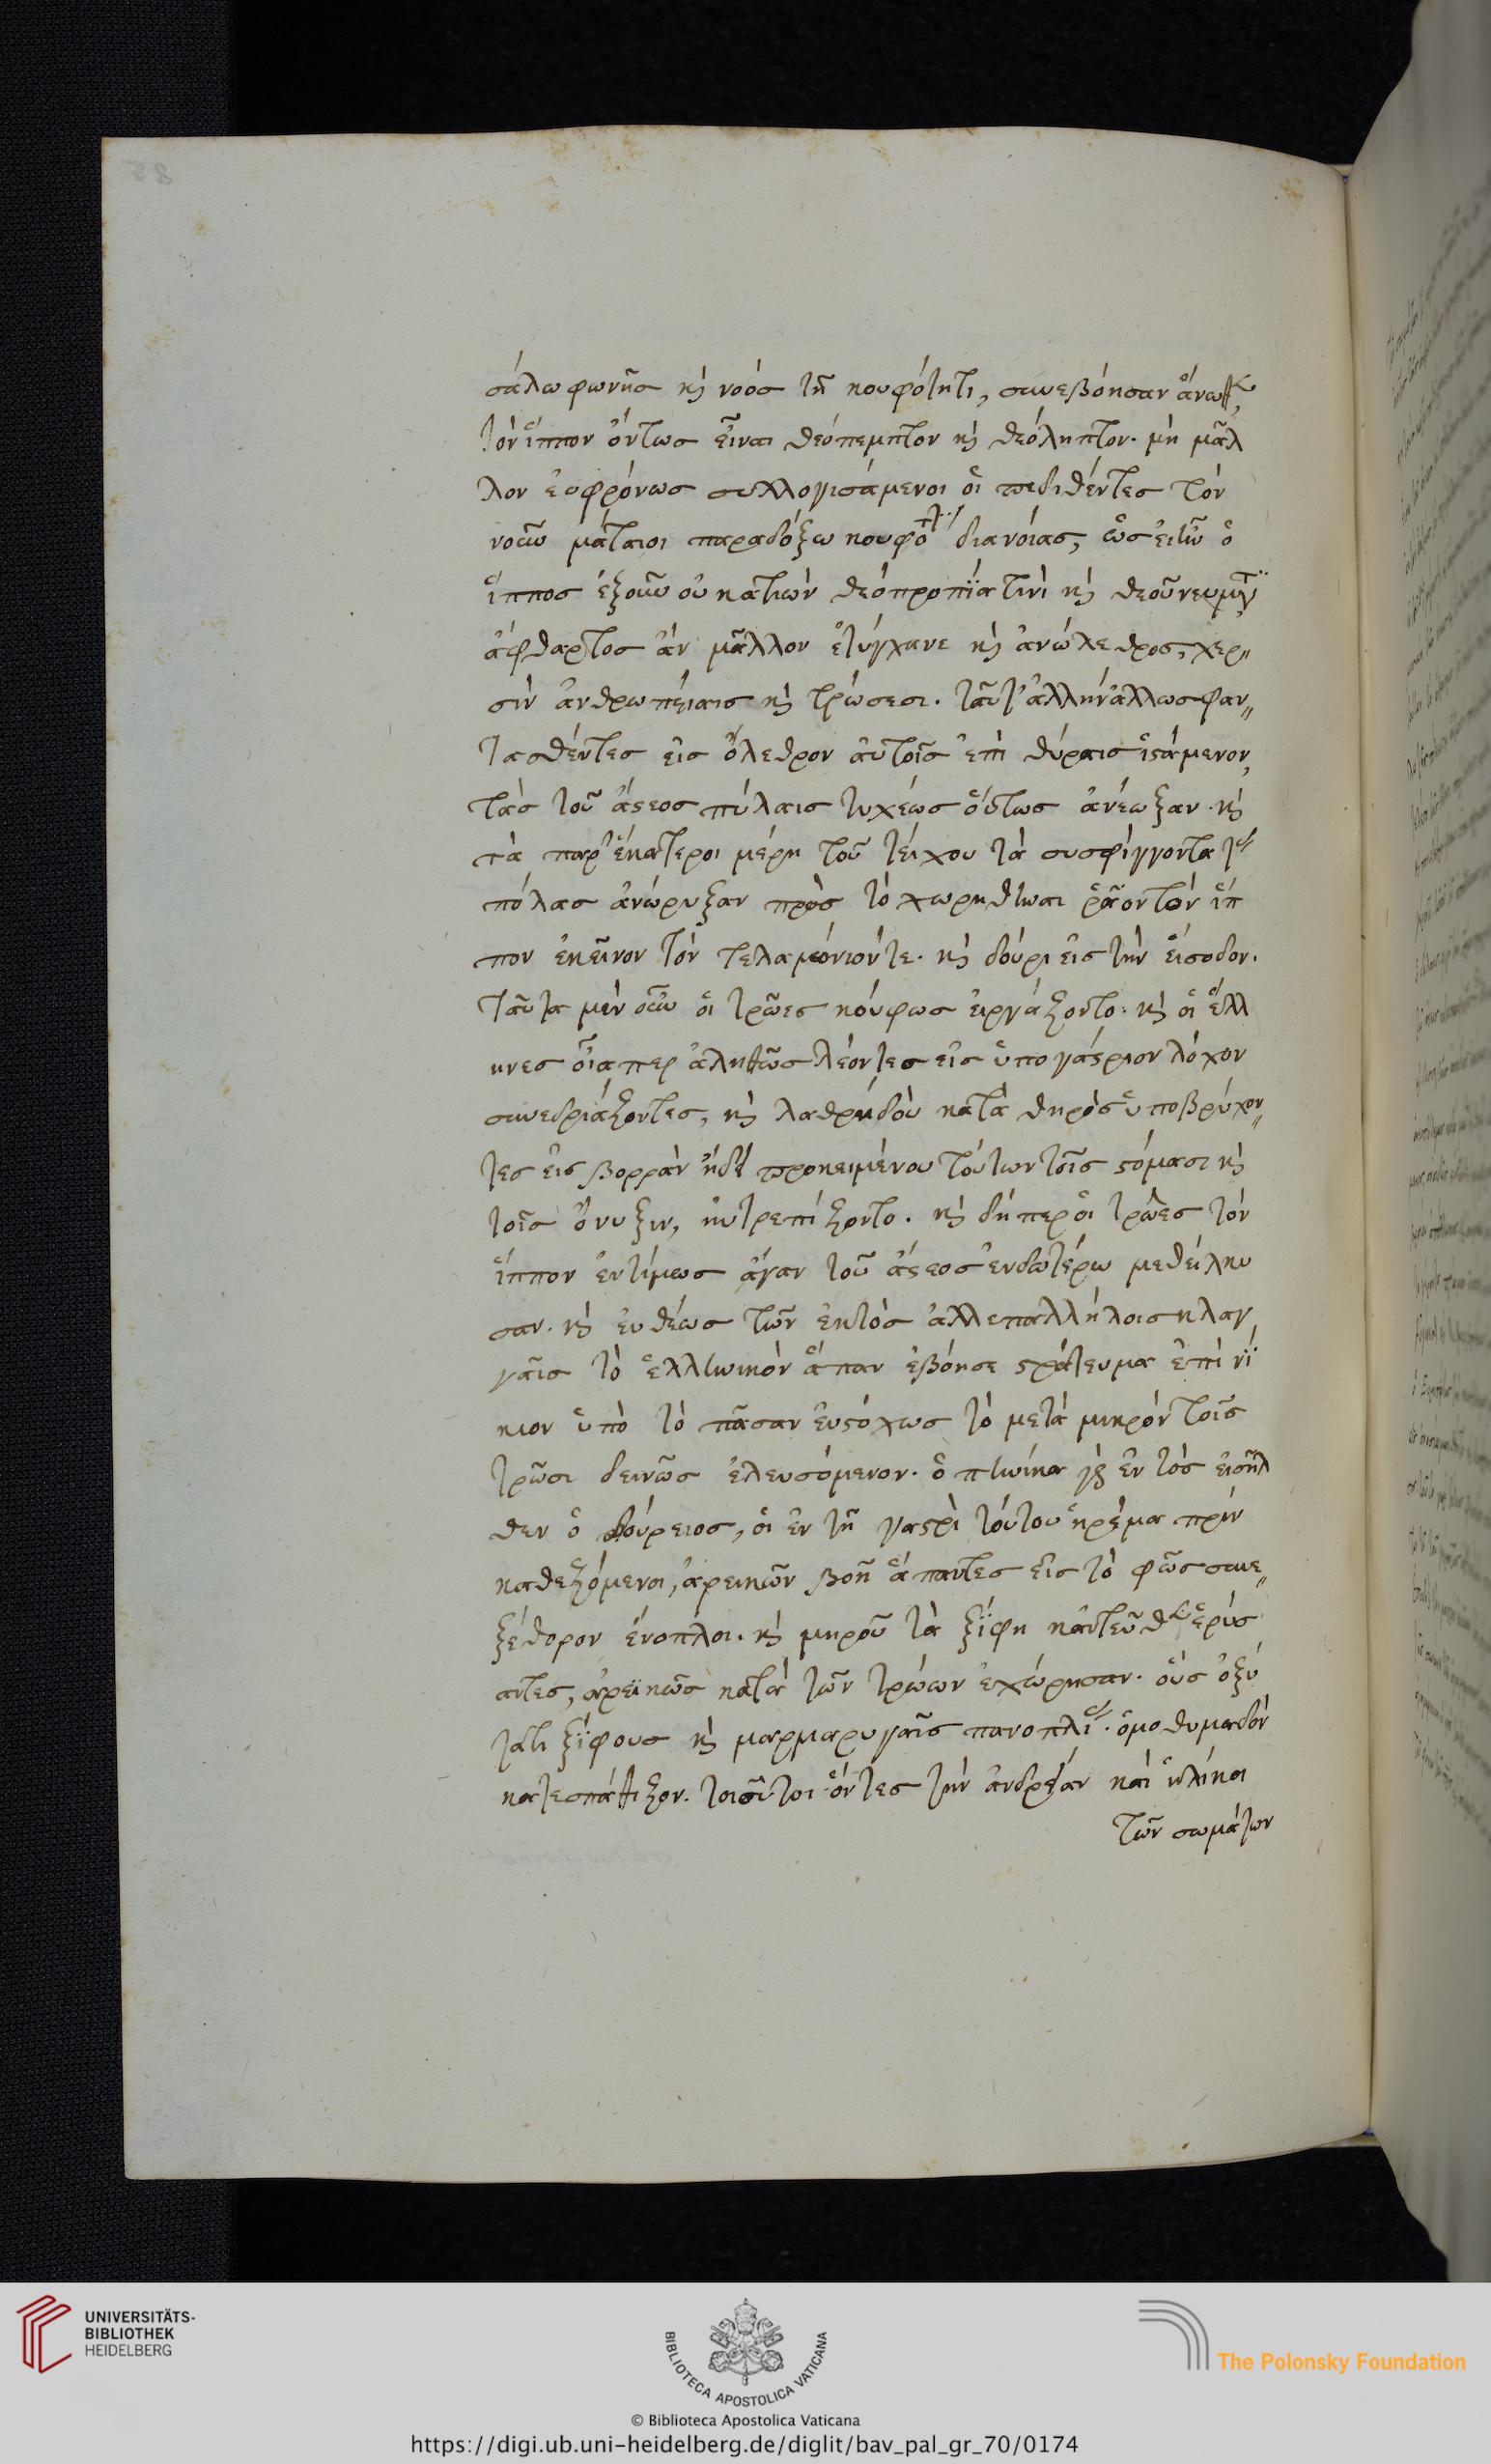 σάλω φωνῆς κὴ νοός τῆ κουφότητι, συνεβόησαν
τόν ἵππον ὄντως εἶναι θεόπεμπτον κὴ θεόληπτον. μὴ μᾶλ
λον συλλογισάμενοι οἱ τὸν
νοῦν μάταιοι παραδόξω διανοίας, ὡς εἰ ἦν ὁ
ἵππος θεοπροπία τινὶ κὴ
ἄφθαρτος ἂν μᾶλλον ἐτύγχανε κὴ ἀνώλεθρος, χερ
σὶν ἀνθρωπείαις κὴ τρώσεσι. ταῦτ' ἄλλην ἄλλως φαν
τασθέντες εἰς ὄλεθρον αὐτοῖς ἐπὶ θύραις ἱστάμενον,
τὰς τοῦ ἄστεος πύλαις ταχέως οὕτως ἀνέωξαν. κὴ
τὰ παρ' ἑκάτεροι μέρη τοῦ τείχου τὰ συσφίγγοντα τὰς
πύλας ἀνώρυξαν πρὸς τὸ χωρηθῆναι ῥᾶον τὸν ἵπ
πον ἐκεῖνον τὸν κὴ δούρι εἰς τὴν εἴσοδον.
ταῦτα μὲν οὖν οἱ τρῶες κούφως εἰργάζοντο. κὴ οἱ ἕλλ
ηνες οἷα περ ἀληθῶς λέοντες εἰς ὑπογάστριον λόχον
συνεδριάζοντες, κὴ λαθρηδὸν κατὰ θηρὸς ὑποβρύχον
τες εἰς βορρὰν ἤδη προκειμένου τούτων τοῖς στόμασι κὴ
τοῖς ὄνυξιν, ηὐτρεπίζοντο. κὴ δήπερ οἱ τρῶες τὸν
ἵππον ἐντίμως ἄγαν τοῦ ἄστεος ἐνδωτέρω μεθείλκυ
σαν. κὴ εὐθέως τῶν ἐκτὸς ἀλλεπαλλήλοις κλαγ
γαῖς τὸ ἑλληνικὸν ἅπαν ἐβόησε στράτευμα ἐπινί
κιον ὑπὸ τὸ πᾶσαν εὐστόχως τὸ μετὰ μικρὸν τοῖς
τρῶσι δεινῶς ἐλευσόμενον. ὁπηνίκα γὰρ ἐντὸς εἰσῆλ
θεν ὁ δούρειος, οἱ ἐν τῆ γαστρὶ τούτου ἠρέμα πρὶν
καθεζόμενοι, ἀρεικῶν βοῆ ἅπαντες εἰς τὸ φῶς συνε
ξέθορον ἔνοπλοι. κὴ μηροῦ τὰ ξίφη κἀντεῦθεν ἐρύσ
αντες, ἀρεϊκῶς κατὰ τῶν τρώων ἐχώρησαν. οὓς ὀξύ
τατι ξίφους κὴ μαρμαρυγαῖς πανοπλίας. ὁμοθυμαδόν
κατεσπάθιζον. τοιοῦτοι ὄντες τὴν ἀνδρείαν καὶ ἡλίκοι
τῶν σωμάτων
UNIVERSITÄTS-
BIBLIOTHEK
HEIDELBERG
BIBLIOTECA APOSTOLICA VATICANA
The Polonsky Foundation
© Biblioteca Apostolica Vaticana
https://digi.ub.uni-heidelberg.de/diglit/bav_pal_gr_70/0174